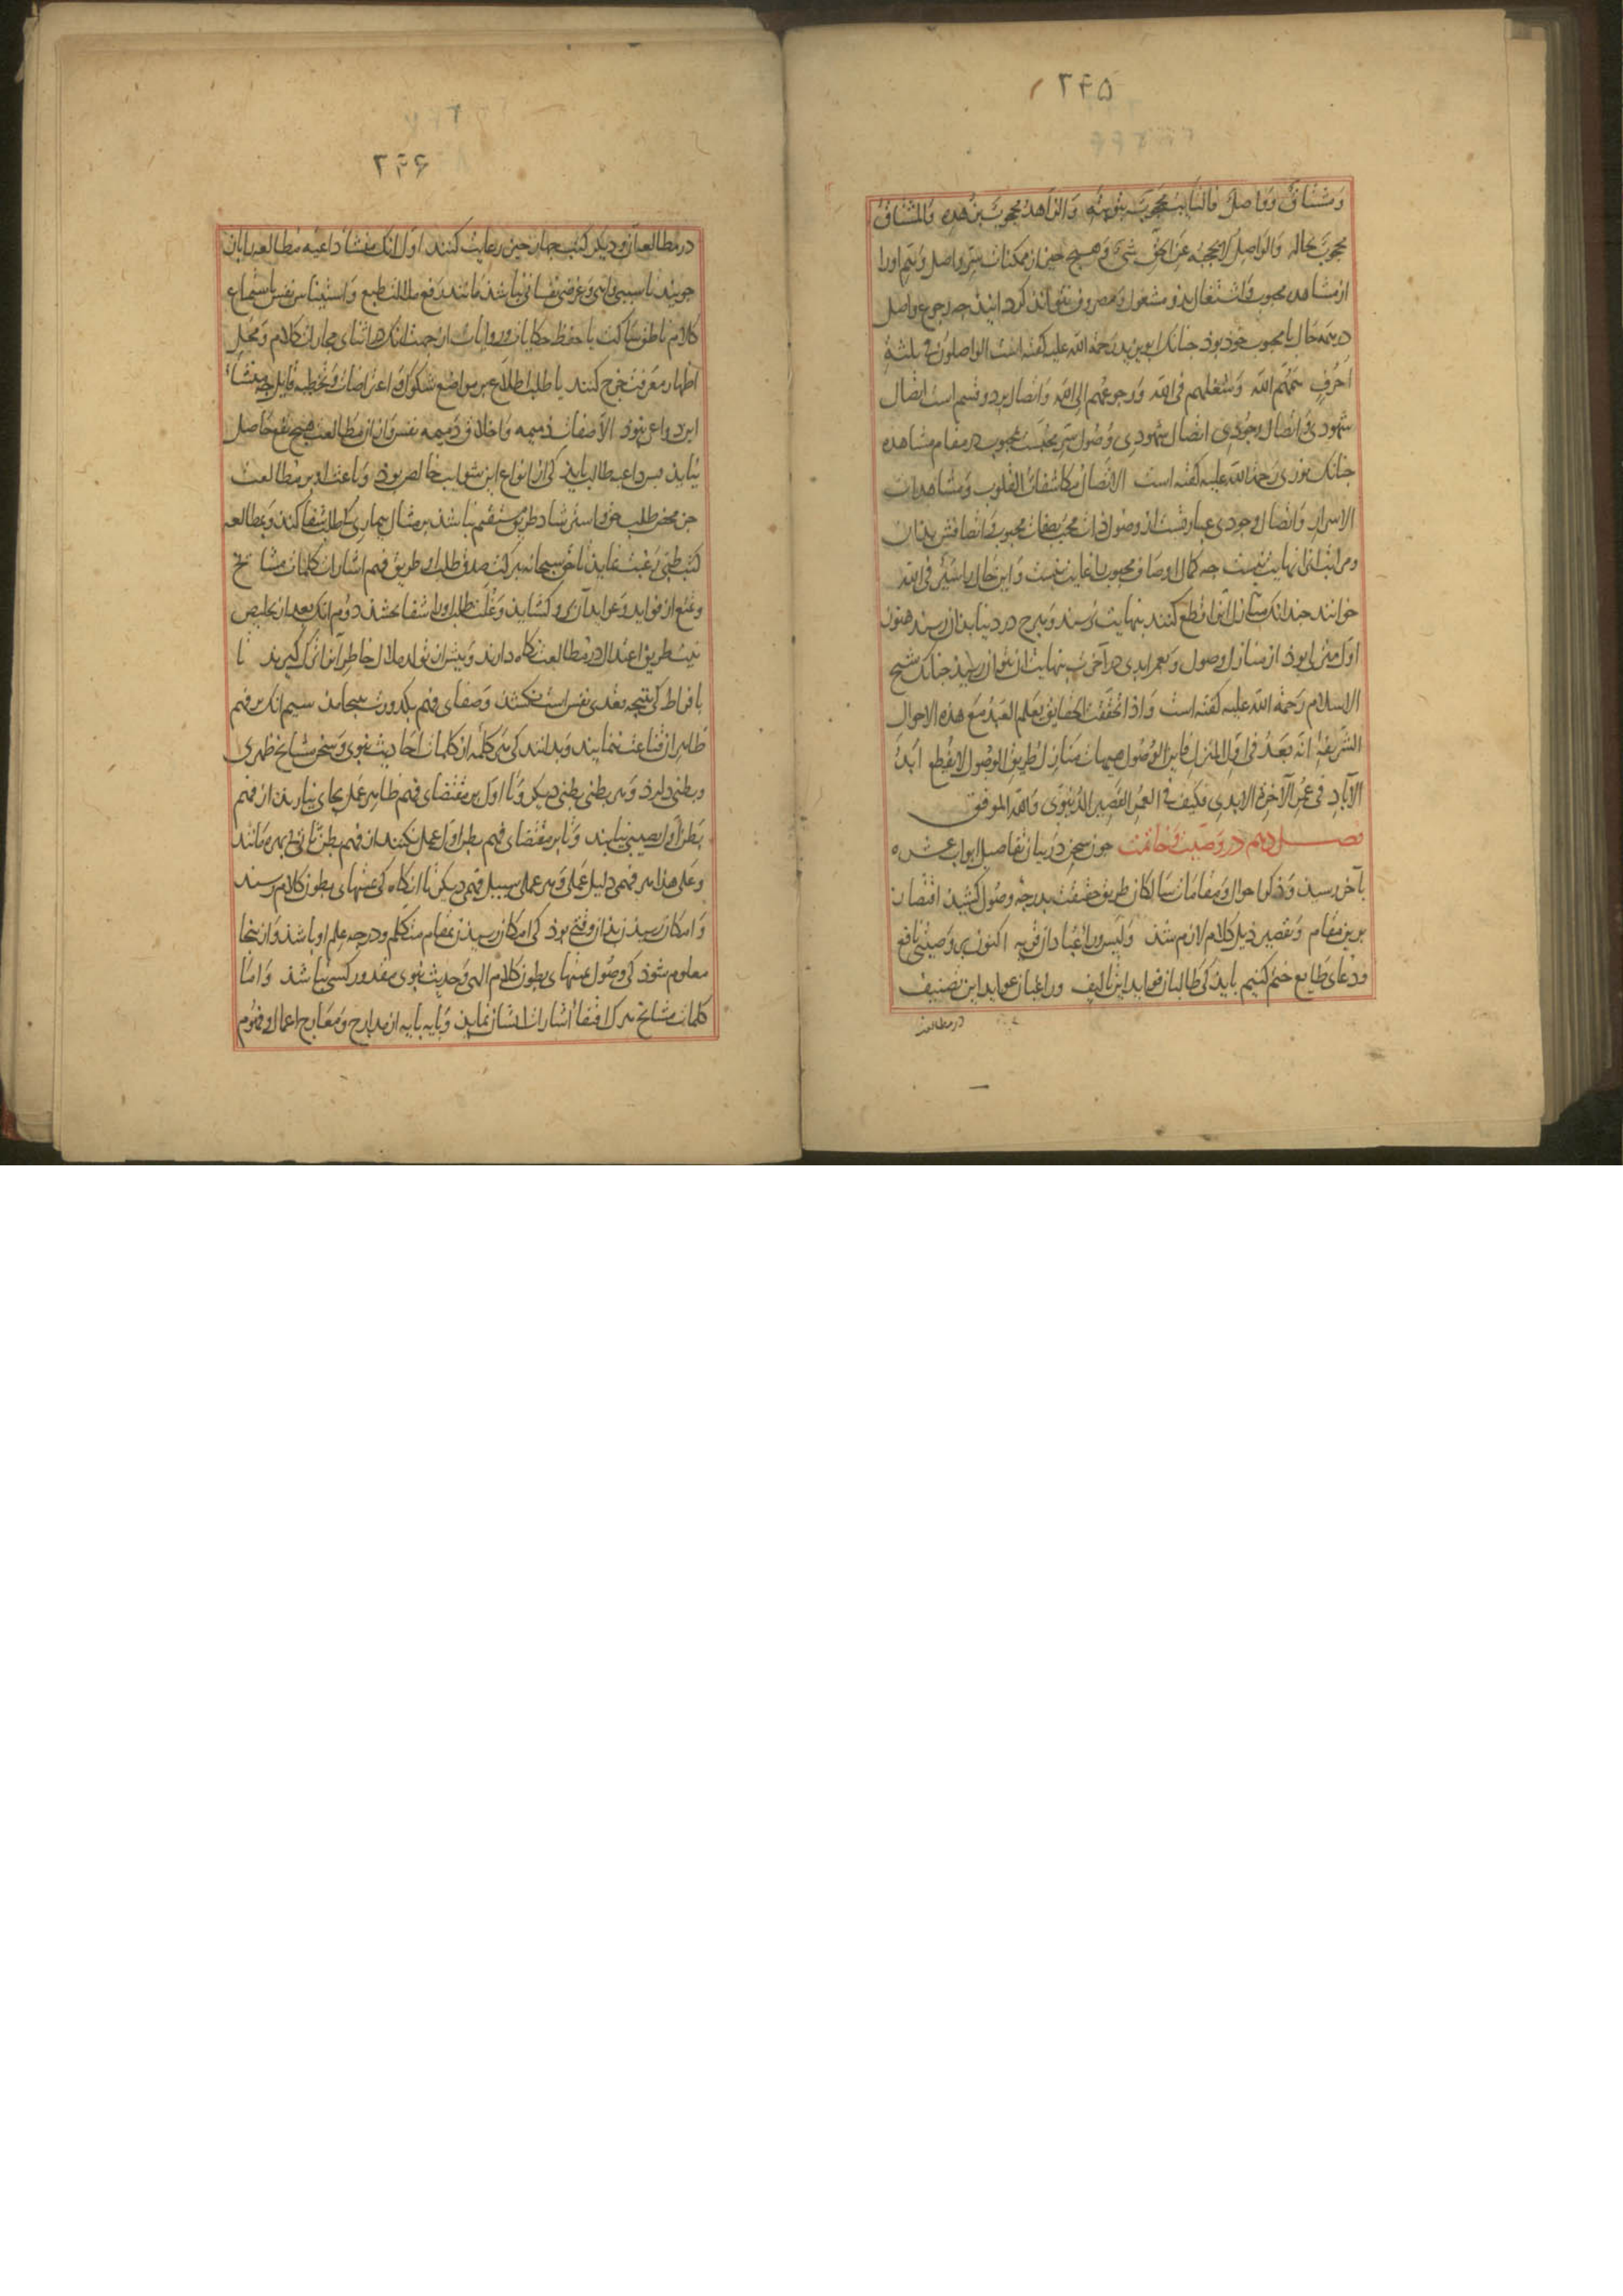 ۲۴۵
ومشتاق وواصل فالتایب محجوب بتوبته والزاهد محجوب بزهده والمشتاق
محجوب بحاله والواصل لایحجبه عن الحق شیء وهیچ چیز از ممکنات سر واصل وهم او را
از مشاهده محبوب واشتغال بدو مشغول ومصروف نتواند کردانید چه رجوع واصل
در همه حال با محبوب خود بود چنانک ابویزید رحمة الله علیه کفته است الواصلون فی ثلثة
احرف همهم الله وشغلهم فی الله ورجوعهم الی الله واتصال بر دو قسم است اتصال
شهودی واتصال وجودی اتصال شهودی وصول سر محبست بمحبوب در مقام مشاهده
چنانک نوری رحمة الله علیه کفته است الاتصال مکاشفات القلوب ومشاهدات
الاسرار واتصال وجودی عبارتست از وصول ذات محب بصفات محبوب واتصافش بدان
ومراتب انرا نهایت نیست چه کمال اوصاف محبوب را غایت نیست واین حال را سیر فی الله
خوانند چندانک منازل آنرا قطع کنند بنهایت نرسند وهرچ در دنیا بدان رسند هنوز
اول منزلی بود از منازل وصول وبعمر ابدی در آخرت بنهایت ان نتوان رسید چنانک شیخ
الاسلام رحمة الله علیه کفته است واذا تحققت الحقایق یعلم العبد مع هذه الاحوال
الشریفة انه بعد فی اول المنزل فاین الوصول هیهات منازل طریق الوصول لا ینقطع ابد
الآباد فی عمر الآخرة الابدی فکیف فی العمر القصیر الدنیوی والله الموفق
فصل دهم در وصیت وخاتمت چون سخن در بیان تفاصیل ابواب عشره
بآخر رسید وذکر احوال ومقامات سالکان طریق حقیقت بدرجه وصول کشید اقتصار
برین مقام وتقصیر ذیل کلام لازم شد ولیس وراء عبادان قریه اکنون بر وصیتی نافع
ودعای طایع ختم کنیم باید کی طالبان فواید این تالیف وراغبان عواید این تصنیف
در مطالعت
۲۴۶
در مطالعه آن ودیکر کتب چهار چیز رعایت کنند اول انک منشأ داعیه مطالعه را باز
جویند تا سببی واهی وغرضی نفسانی نباشد مانند دفع ملالت طبع واستیناس نفس باستماع
کلام ناطق ساکت یا حفظ حکایات وروایات از جهت انک در اثنای مجارات کلام ومحل
اظهار معرفت خرج کنند یا طلب اطلاع بر مواضع شکوک واعتراضات وتخطیه قایل چه منشأ
این دواعی نبود الا صفات ذمیمه واخلاق دمیمه نفس وازان مطالعت هیچ نفع حاصل
نیاید پس داعیه طالب باید کی از انواع این شوایب خالص بود وباعث او بر مطالعت
جز محض طلب حق واسترشاد طریق مستقیم نباشد بر مثال بیماری کی طلب شفا کند وبمطالعه
کتب طبی رغبت نماید تا حق سبحانه ببرکت صدق طلب او طریق فهم اشارات کلمات مشایخ
وتمتع از فواید وعواید آن برو کشاید وعلت طلب او را شفا بخشد دوم انک بعد از تخلیص
نیت طریق اعتدال در مطالعت نکاه دارند وپیش از تولد ملال خاطر آنرا ترک کیرند تا
بافراط کی نتیجه تعدی نفس است نکشد وصفای فهم بکدورت نینجامد سیم انک بر فهم
ظاهر ازان قناعت ننمایند وبدانند کی هر کلمه از کلمات احادیث نبوی وسخن مشایخ ظهری
وبطنی دارد وهر بطنی بطنی دیکر وتا اول بر مقتضای فهم ظاهر عمل بجای نیارند از فهم
بطن اول نصیبی نیابند وتا بر مقتضای فهم بطن اول عمل نکنند از فهم بطن ثانی بی بهره مانند
وعلی هذا هر فهمی دلیل عملی وهر عملی سبیل فهمی دیکر تا انکاه کی بمنتهای بطون کلام رسند
وامکان رسیدن بدان وقتی بود کی امکان رسیدن بمقام متکلم ودرجه علم او باشد وازینجا
معلوم شود کی وصول بمنتهای بطون کلام الهی وحدیث نبوی مقدور کسی نباشد واما
کلمات مشایخ هرک اقتفاء آثار ایشان نماید وپایه پایه از مدارج ومعارج اعمال وفهوم